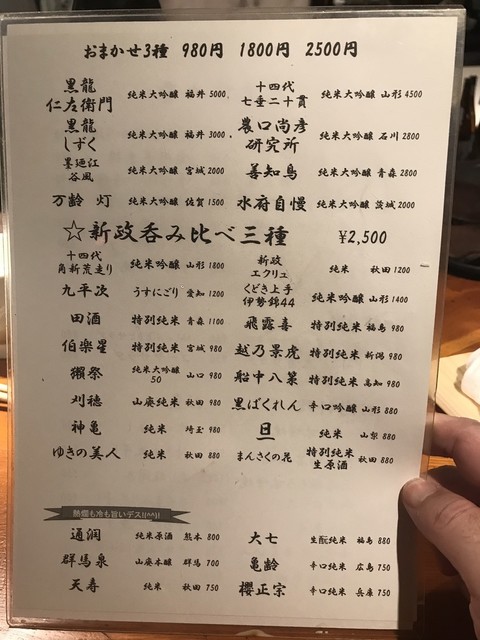 おまかせ3種 980円 1800円 2500円
黒龍 仁左衛門 純米大吟醸 福井 5000
十四代 七垂二十貫 純米大吟醸 山形 4500
黒龍 しずく 純米大吟醸 福井 3000
農口尚彦 研究所 純米大吟醸 石川 2800
墨廼江 谷風 純米大吟醸 宮城 2000
善知鳥 純米大吟醸 青森 2800
万齢 灯 純米大吟醸 佐賀 1500
水府自慢 純米大吟醸 茨城 2000
☆新政呑み比べ三種 ¥2,500
十四代 角新荒走り 純米吟醸 山形 1800
新政 エクリュ 純米 秋田 1200
九平次 うすにごり 愛知 1200
くどき上手 伊勢錦44 純米吟醸 山形 1400
田酒 特別純米 青森 1100
飛露喜 特別純米 福島 980
伯楽星 特別純米 宮城 980
越乃景虎 特別純米 新潟 980
獺祭 純米大吟醸 50 山口 980
船中八策 特別純米 高知 980
刈穂 山廃純米 秋田 980
黒ばくれん 辛口吟醸 山形 880
神亀 純米 埼玉 980
旦 純米 山梨 880
ゆきの美人 純米 秋田 880
まんさくの花 特別純米 生原酒 秋田 880
熱燗も冷も旨いデス!!(^^)!
通潤 純米原酒 熊本 800
大七 生酛純米 福島 880
群馬泉 山廃本醸 群馬 700
亀齢 辛口純米 広島 750
天寿 純米 秋田 750
櫻正宗 辛口純米 兵庫 750